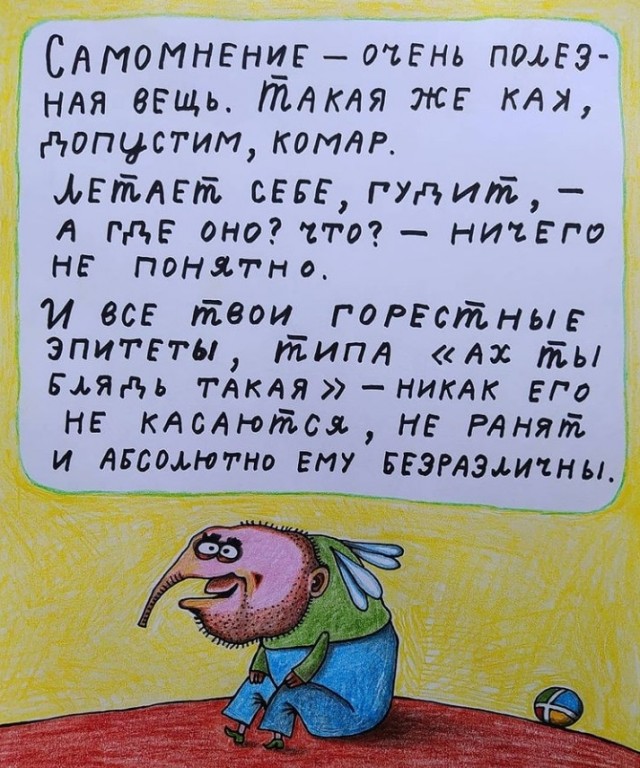 Самомнение — очень полез-
ная вещь. Такая же как,
допустим, комар.
Летает себе, гудит, —
а где оно? что? — ничего
не понятно.
И все твои горестные
эпитеты, типа «Ах ты
блядь такая» — никак его
не касаются, не ранят
и абсолютно ему безразличны.